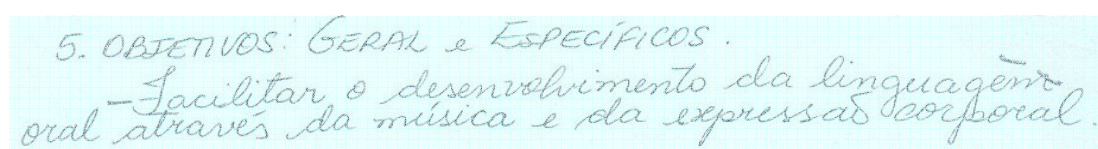 5. OBJETIVOS: GERAL e ESPECÍFICOS.
- Facilitar o desenvolvimento da linguagem
oral através da música e da expressão corporal.